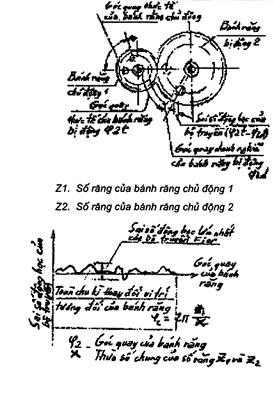 Góc quay thực tế
của bánh răng chủ động
Bánh răng
bị động 2
Bánh răng
chủ động 1
Góc quay
thực tế của bánh răng
bị động φ2t
Sai số động học của
bộ truyền (φ2t-φ2d)
Góc quay danh nghĩa
của bánh răng bị động
φ2d
Z1. Số răng của bánh răng chủ động 1
Z2. Số răng của bánh răng chủ động 2
Sai số động học lớn nhất
của bộ truyền Fior
Góc quay
của bánh
răng
Sai số động học của
bộ truyền
Toàn chu kì thay đổi vị trí
tương đối của bánh răng
φc = 2π z1/x
φ2 - Góc quay của bánh răng
x Thừa số chung của số răng Z1 và Z2